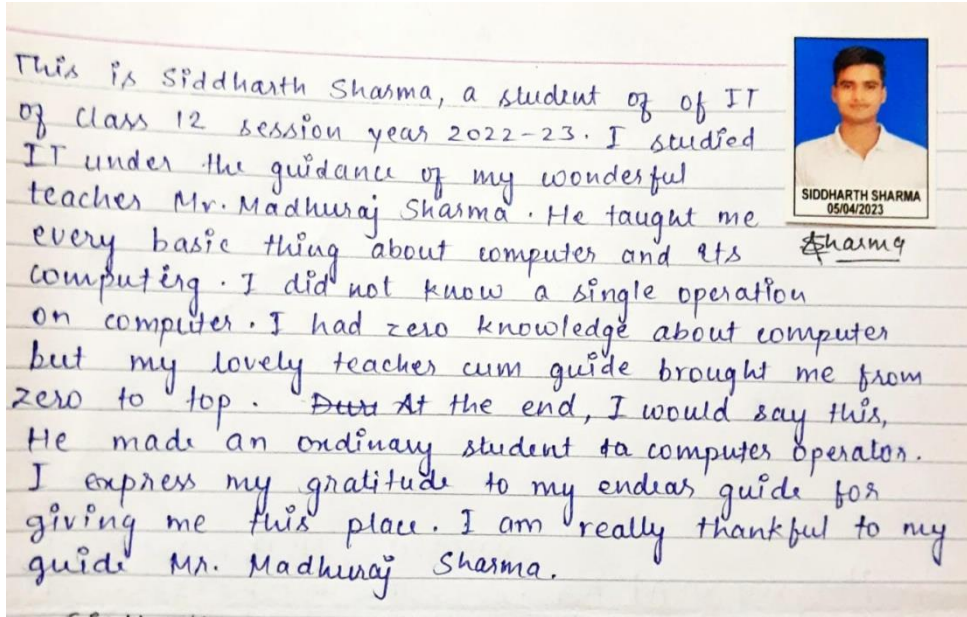 This is Siddharth Sharma, a student of of IT
of Class 12 session year 2022-23. I studied
IT under the guidance of my wonderful
teacher Mr. Madhuraj Sharma. He taught me
every basic thing about computer and its
computing. I did not know a single operation
on computer. I had zero knowledge about computer
but my lovely teacher cum guide brought me from
zero to top. At the end, I would say this,
He made an ordinary student to computer operator.
I express my gratitude to my endear guide for
giving me this place. I am really thankful to my
guide Mr. Madhuraj Sharma.
SIDDHARTH SHARMA
05/04/2023
Sharma